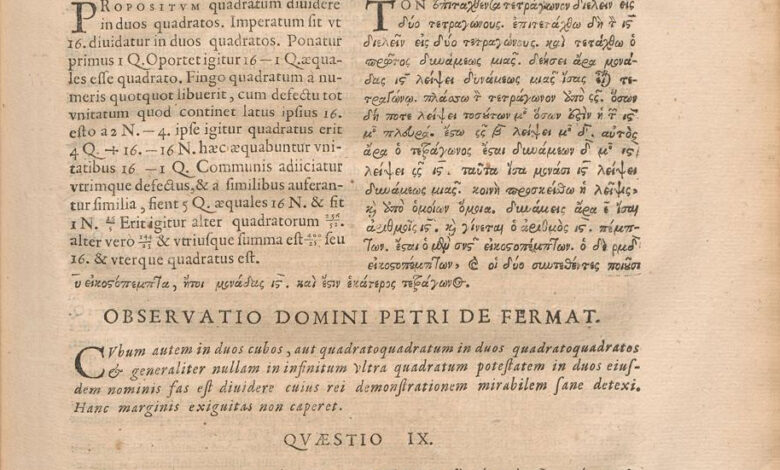 PROPOSITVM quadratum diuidere
in duos quadratos. Imperatum sit vt
16. diuidatur in duos quadratos. Ponatur
primus 1 Q. Oportet igitur 16 – 1 Q. æqua-
les esse quadrato. Fingo quadratum à nu-
meris quotquot libuerit, cum defectu tot
vnitatum quod continet latus ipsius 16.
esto a 2 N. – 4. ipse igitur quadratus erit
4 Q. + 16. – 16 N. hæc æquabuntur vni-
tatibus 16 – 1 Q. Communis adiiciatur
vtrimque defectus, & a similibus auferan-
tur similia, fient 5 Q. æquales 16 N. & fit
1 N. Erit igitur alter quadratorum
alter verò & vtriusque summa est seu
16. & vterque quadratus est.
ΤΟΝ ἐπιταχθέντα τετράγωνον διελεῖν εἰς
δύο τετραγώνους. ἐπιτετάχθω δὴ τ ις
διελεῖν εἰς δύο τετραγώνους. καὶ τετάχθω ὁ
πρῶτος δυνάμεως μιᾶς. δεήσει ἄρα μονά-
δας ις λείψει δυνάμεως μιᾶς ἴσας τε-
τραγώνῳ. πλάσσω τ τετράγωνον ἀπὸ ςς. ὅσων
δή ποτε λείψει τοσούτων μο ὅσων ἐστὶν ἡ τ ις
μο πλευρά. ἔστω ςς β λείψει μο δ. αὐτὸς
ἄρα ὁ τετράγωνος ἔσται δυνάμεων δ μο ις
λείψει ςς ις. ταῦτα ἴσα μονάσι ις λείψει
δυνάμεως μιᾶς. κοινὴ προσκείσθω ἡ λεῖψις,
κ ἀπὸ ὁμοίων ὅμοια. δυνάμεις ἄρα ε ἴσαι
ἀριθμοῖς ις. κ γίνεται ὁ ἀριθμὸς ις. πέμπ-
των. ἔσται ὁ μὲν σνς εἰκοσοπέμπτων. ὁ δὲ ρμδ
εἰκοσοπέμπτων, οἱ δύο συντεθέντες ποιοῦσι
υ εἰκοσόπεμπτα, ἤτοι μονάδας ις. καὶ ἔστιν ἑκάτερος τετράγωνος.
OBSERVATIO DOMINI PETRI DE FERMAT.
CVbum autem in duos cubos, aut quadratoquadratum in duos quadratoquadratos
& generaliter nullam in infinitum vltra quadratum potestatem in duos eius-
dem nominis fas est diuidere cuius rei demonstrationem mirabilem sane detexi.
Hanc marginis exiguitas non caperet.
QVÆSTIO IX.